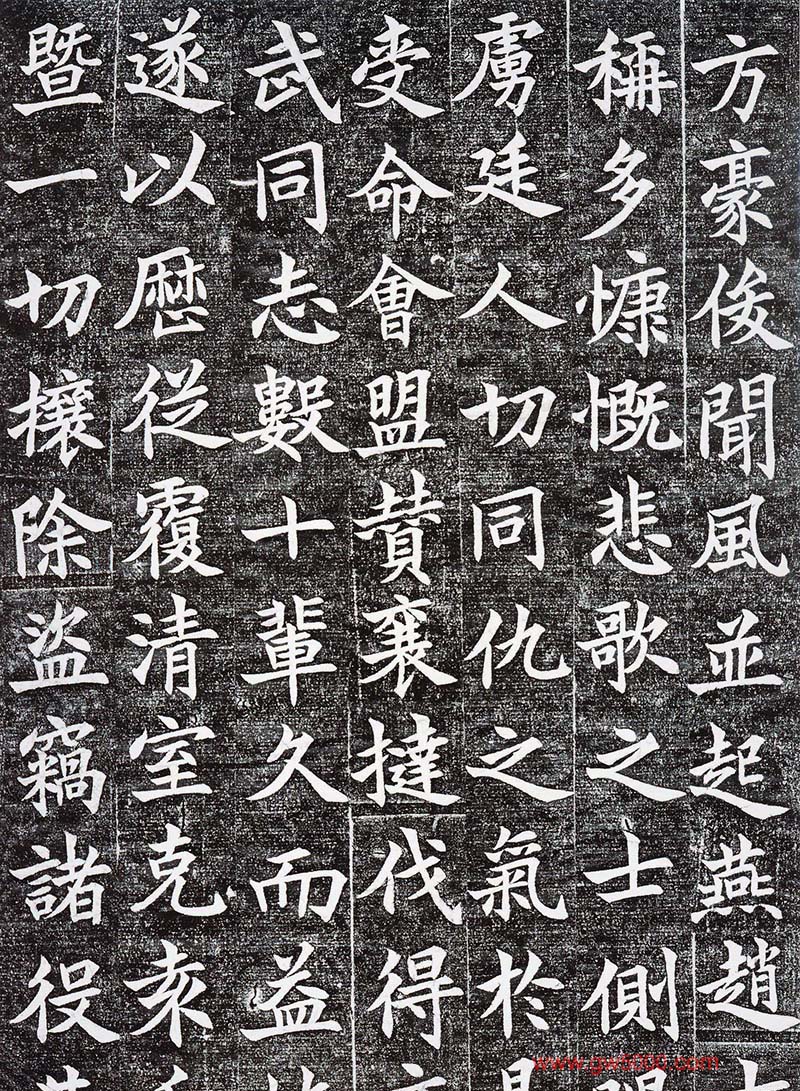 方豪俊聞風並起燕趙
稱多慷慨悲歌之士側
虜廷人切同仇之氣於
受命會盟贊襄撻伐得
武同志數十輩久而益
遂以歷從覆清室克
暨一切攘除盜竊諸役
www.gw5000.com